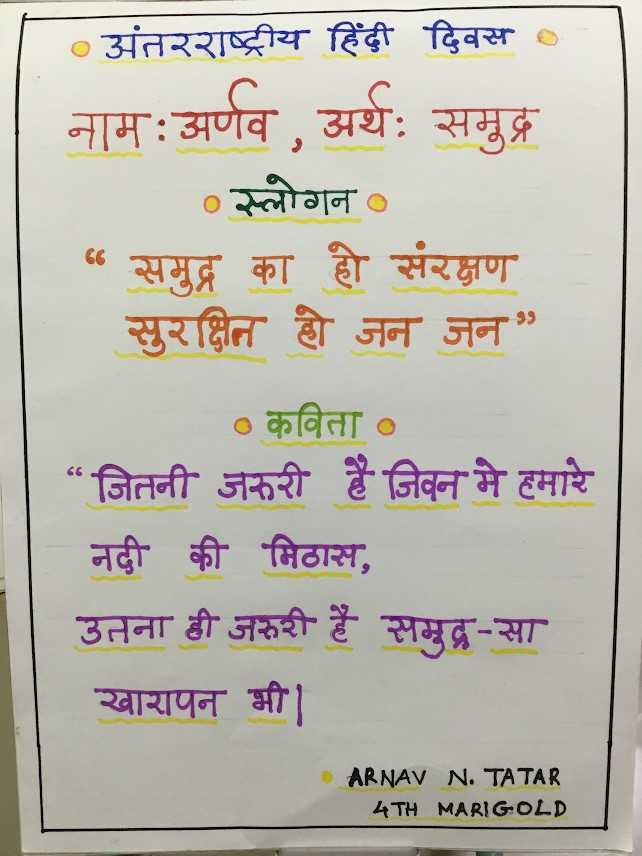 अंतरराष्ट्रीय हिंदी दिवस
नाम : अर्णव , अर्थ : समुद्र
स्लोगन
“ समुद्र का हो संरक्षण
सुरक्षित हो जन जन ”
कविता
“ जितनी जरुरी है जिवन मे हमारे
नदी की मिठास,
उतना ही जरुरी है समुद्र-सा
खारापन भी।
ARNAV N. TATAR
4TH MARIGOLD